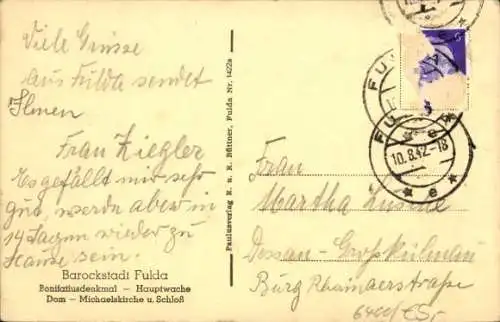 Viele Grüsse
aus Fulda sendet
Ihnen
Frau Ziegler
Es gefällt mir sehr
gut, werde aber in
14 Tagen wieder zu
Hause sein.
Barockstadt Fulda
Bonifatiusdenkmal — Hauptwache
Dom — Michaelskirche u. Schloß
Paulusverlag K. u. K. Büttner, Fulda Nr. 1422a
FULDA
FULDA
10.8.42-18
* e *
Frau
Martha
Dessau-Großkühnau
Burg